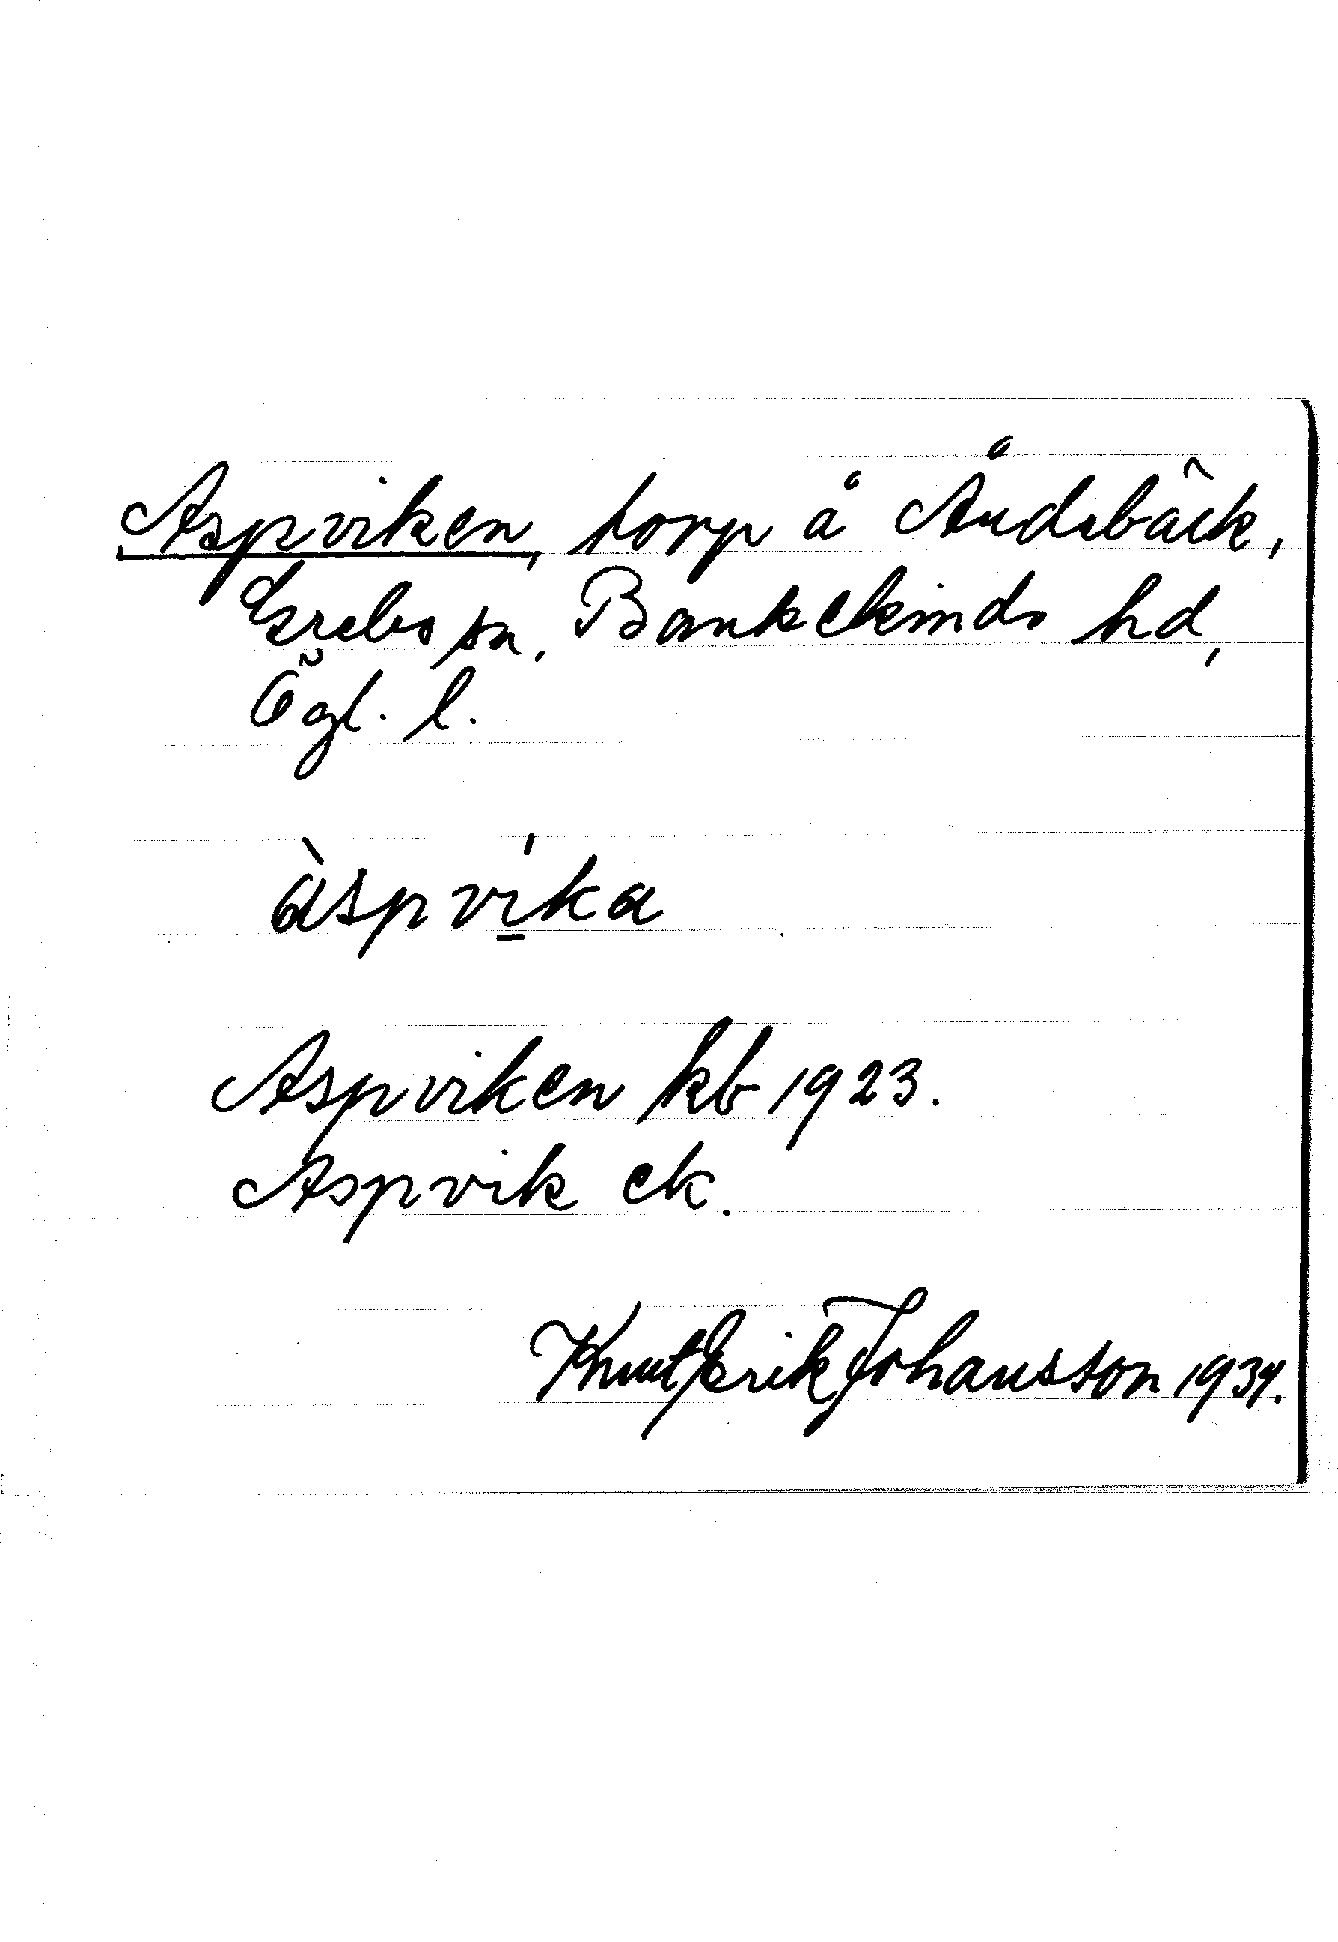 Aspviken, torp å Åndebäck,
Grebo sn, Bankekinds hd,
Ögl. l.
àspvíka
Aspviken kb 1923.
Aspvik ek.
Knut Erik Johansson 1934.